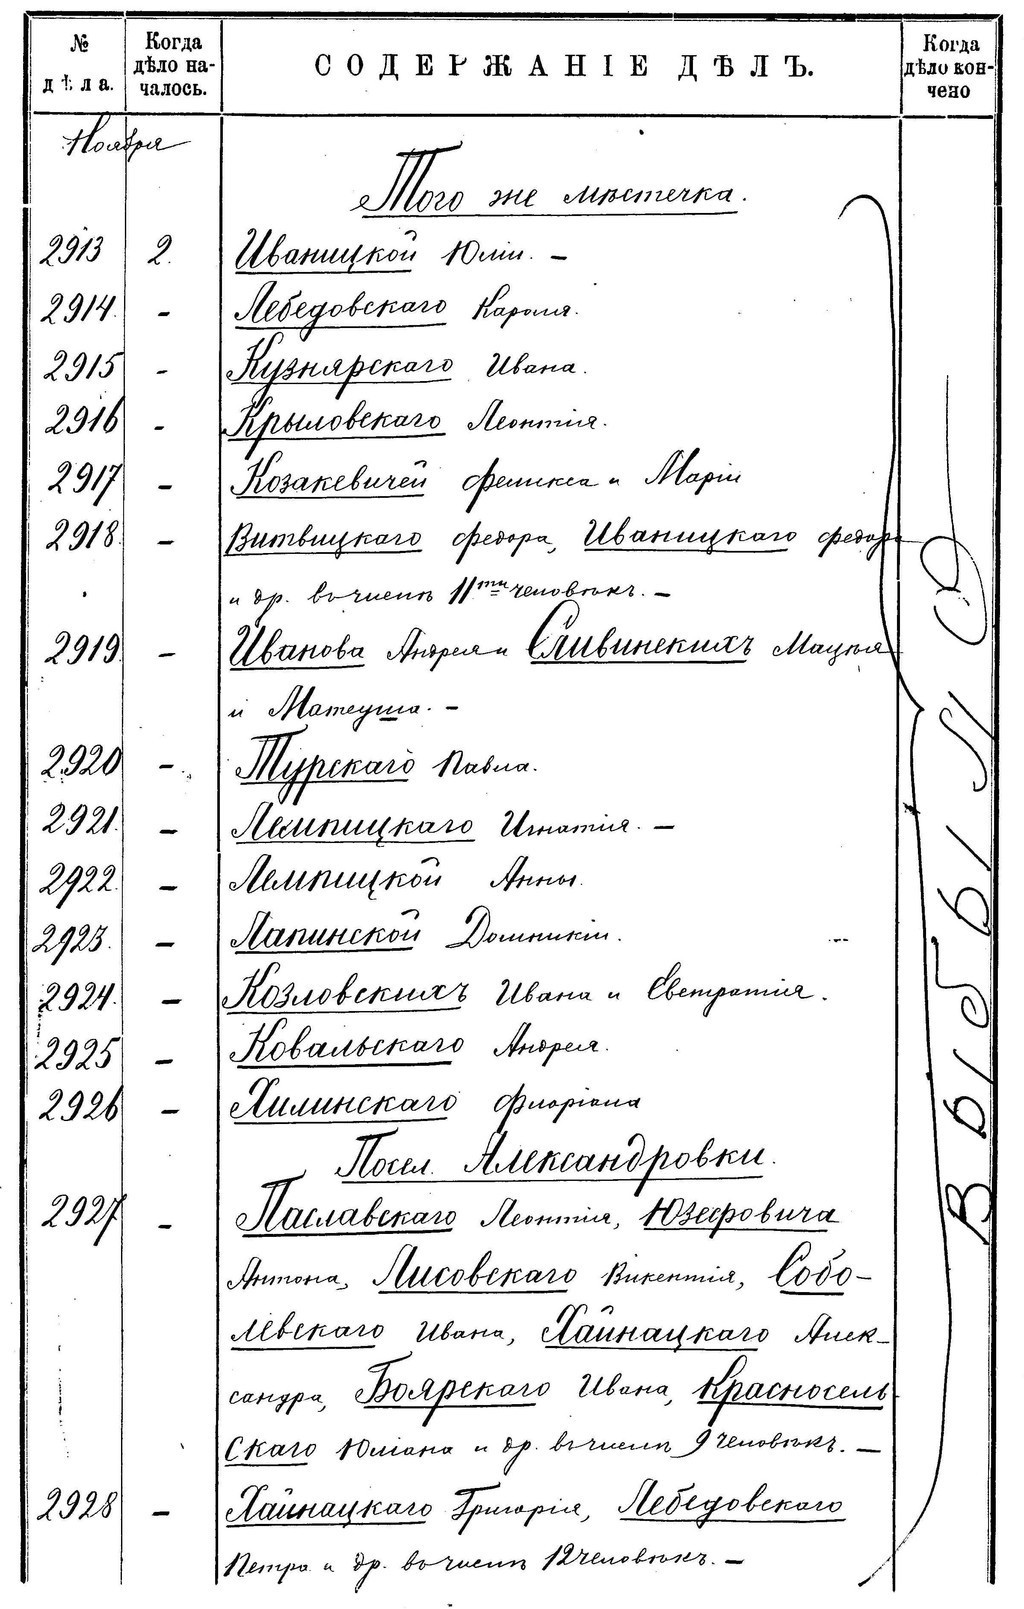 № дѣла.
Когда дѣло началось.
СОДЕРЖАНІЕ ДѢЛЪ.
Когда дѣло кончено
Ноября
Того же мѣстечка.
2913 2. Иваницкой Юліи. –
2914. – Лебедовскаго Кароля.
2915 – Кузнярскаго Ивана.
2916 – Крыловскаго Леонтія.
2917 – Козакевичей Феликса и Маріи
2918. – Витвицкаго Федора, Иваницкаго Федора
и др. въ числѣ 11ти человѣкъ. –
2919. – Иванова Андрея и Сливинскихъ Мацѣя
и Матеуша. –
2920 – Турскаго Павла.
2921. – Лемпицкаго Игнатія. –
2922. – Лемпицкой Анны.
2923. – Лапинской Домникіи.
2924. – Козловскихъ Ивана и Евстратія.
2925 – Ковальскаго Андрея.
2926 – Хилинскаго Флоріана
Посел. Александровки.
2927 – Паславскаго Леонтія, Юзефовича
Антона, Лисовскаго Викентія, Собо-
левскаго Ивана, Хайнацкаго Алек-
сандра, Боярскаго Ивана, Красносель-
скаго Юліана и др. въ числѣ 9 человѣкъ. –
2928 – Хайнацкаго Григорія, Лебедовскаго
Петра и др. въ числѣ 12 человѣкъ. –